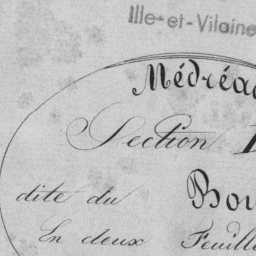 Ille-et-Vilaine
Médréac
Section
dite du Bou
En deux Feuille